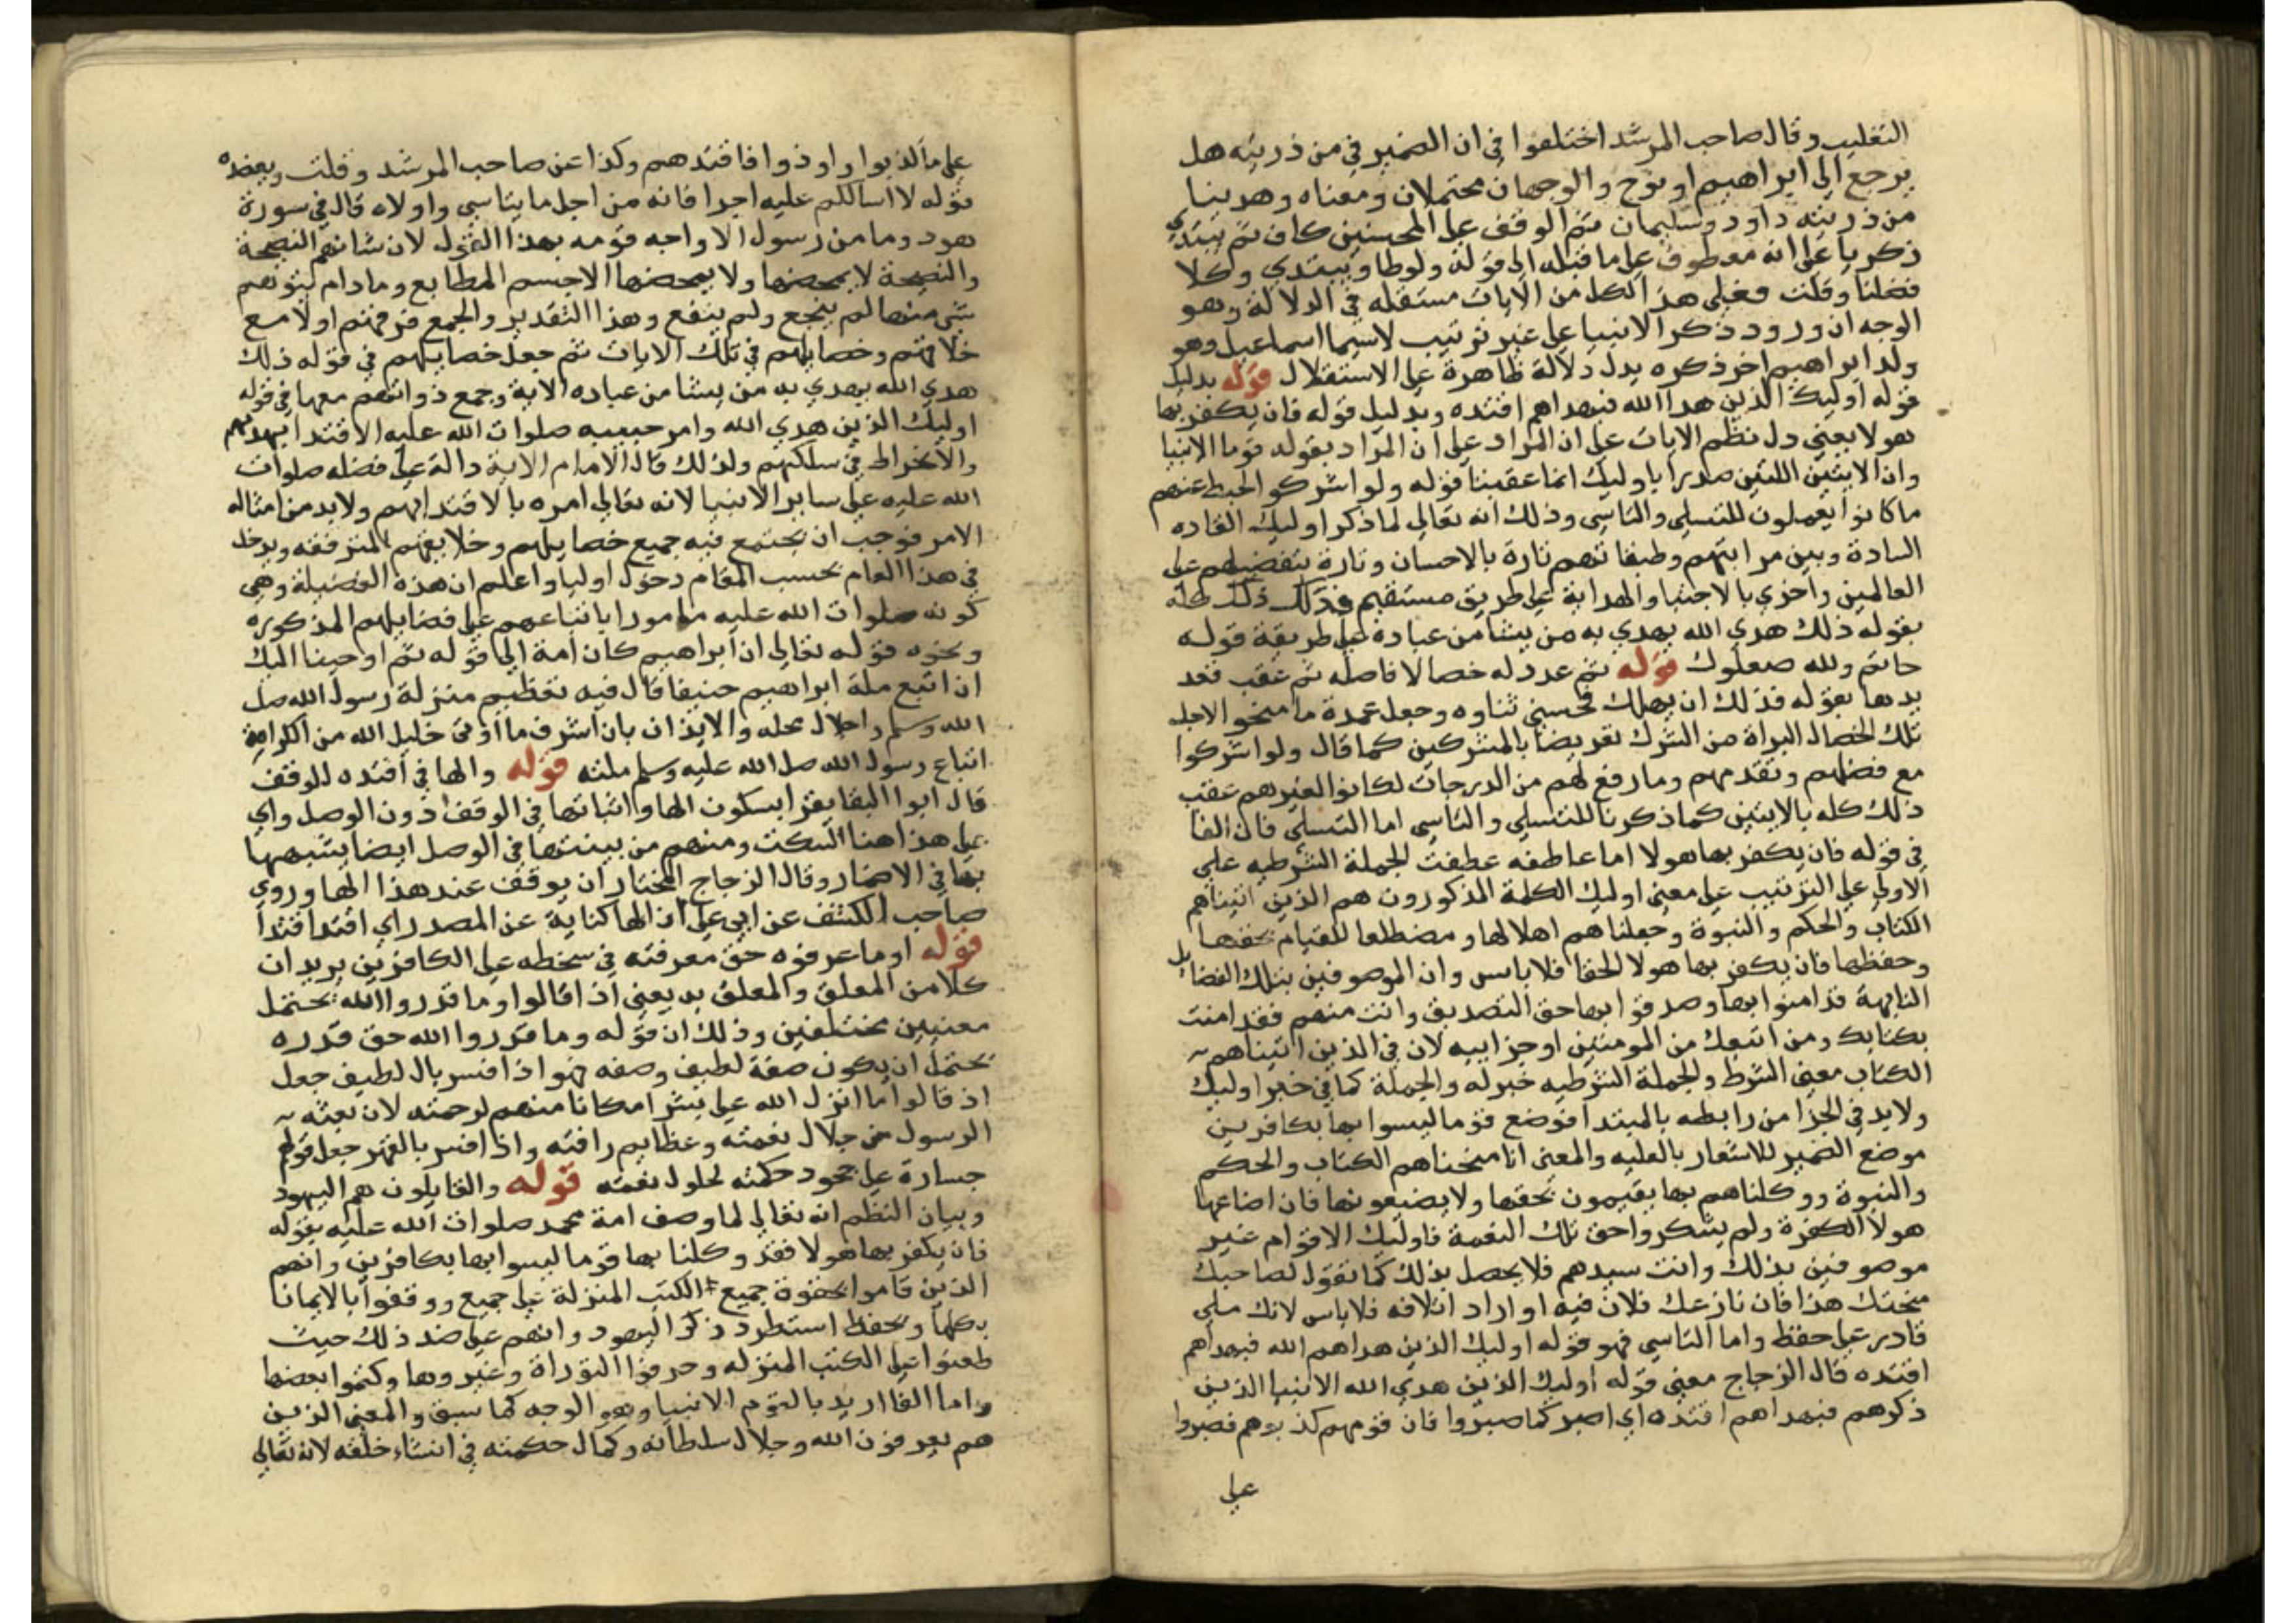 التغليب وقال صاحب المرشد اختلفوا في ان الضمير في من ذريته هل
يرجع الى ابراهيم او نوح والوجهان محتملان ومعناه وهدينا
من ذريته داود وسليمان ثم الوقف على المحسنين كاف ثم يبتدي
زكريا على انه معطوف على ما قبله الى قوله ولوطا ويبتدي وكلا
فضلنا وقلت فعلى هذا لكل من الايات مستقله في الدلالة وهو
الوجه ان ورود ذكر الانبيا على غير ترتيب لاسيما اسماعيل وهو
ولد ابراهيم اخر ذكره يدل دلالة ظاهرة على الاستقلال قوله بدليل
قوله اوليك الذين هدا الله فبهداهم اقتده وبدليل قوله فان يكفر بها
هولا يعني دل نظم الايات على ان المراد على ان المراد بقوله قوما الانبيا
وان الايتين اللتين صدرا باوليك انما عقبتا قوله ولو اشركو الحبط عنهم
ما كانوا يعملون للتسلي والتاسي وذلك انه تعالى لما ذكر اوليك القاده
السادة وبين مراتبهم وطبقاتهم تارة بالاحسان وتارة بتفضيلهم على
العالمين واخرى بالاجتبا والهداية على طريق مستقيم فذلك ذلك كله
بقوله ذلك هدى الله يهدي به من يشا من عباده على طريقة قوله
حاتم ولله صعلوك قوله ثم عدد له خصالا فاصله ثم عقب تعد
يدها بقوله فذلك ان يهلك فحسني ثناوه وجعل عمدة ما منحو الاجله
تلك الخصال البراة من الشرك تعريضا بالمشركين كما قال ولو اشركوا
مع فضلهم وتقدمهم وما رفع لهم من الدرجات لكانوا لغيرهم عقب
ذلك كله بالايتين كما ذكرنا للتسلي والتاسي اما التسلي فان الفا
في قوله فان يكفر بها هولا اما عاطفه عطفت الجملة الشرطيه على
الاولى على الترتيب على معنى اوليك الكلمة المذكورون هم الذين اتيناهم
الكتاب والحكم والنبوة وجعلناهم اهلا لها ومضطلعا للقيام بحقها
وحفظها فان يكفر بها هولا الحقا فلا باس وان الموصوفين بتلك الفضائل
النابهة قد امنوا بها وصدقوا بها حق التصديق وانت منهم فقد امنت
بكتابك ومن اتبعك من المومنين او جزاييه لان في الذين اتيناهم
الكتاب معنى الشرط والجملة الشرطيه خبر له والجملة كما في خبر اوليك
ولا بد في الجزا من رابطه بالمبتدا فوضع قوما ليسوا بها بكافرين
موضع الضمير للاشعار بالعليه والمعنى انا منحناهم الكتاب والحكم
والنبوة ووكلناهم بها يقيمون بحقها ولا يضيعونها فان اضاعها
هولا الكفرة ولم يشكروا حق تلك النعمة فاوليك الاقوام غير
موصوفين بذلك وانت سيدهم فلا يحصل بذلك كما تقول لصاحبك
منحتك هذا فان نازعك فلان فيه او اراد اتلافه فلا باس لانك ملي
قادر على حفظ واما التاسي فهو قوله اوليك الذين هداهم الله فبهداهم
اقتده قال الزجاج معنى قوله اوليك الذين هدى الله الانبيا الذين
ذكرهم فبهداهم اقتده اي اصبر كما صبروا فان قومهم كذبوهم فصبروا
على
على ما كذبوا واوذوا فاقتد هم وكذا عن صاحب المرشد وقلت ويعضده
قوله لا اسالكم عليه اجرا فانه من اجل ما يتاسى واولاه قال في سورة
هود وما من رسول الا واجه قومه بهذا القول لان شانهم النصيحة
والنصيحة لا يمحضها ولا يمحضها الا جسم المطابع وما دام يتوهم
شي منها لم ينجع ولم ينفع وهذا التقدير والجمع فرقهم اولا مع
خلايقهم وخصايلهم في تلك الايات ثم جعل خصايلهم في قوله ذلك
هدى الله يهدي به من يشا من عباده الاية وجمع ذواتهم معها في قوله
اوليك الذين هدى الله وامر حبيبه صلوات الله عليه الاقتدا بهديهم
والانخراط في سلكهم ولذلك قال الامام الاية دالة على فضله صلوات
الله عليه على ساير الانبيا لانه تعالى امره بالاقتدا بهم ولا بد من امثاله
الامر فوجب ان يجتمع فيه جميع خصايلهم وخلايقهم المتفرقه ويدخل
في هذا العام بحسب المقام دخول اوليا واعلم ان هذه الفضيلة وهي
كونه صلوات الله عليه مامورا باتباعهم على فضايلهم المذكوره
ونحوه قوله تعالى ان ابراهيم كان امة الى قوله ثم اوحينا اليك
ان اتبع ملة ابراهيم حنيفا قال فيه تعظيم منزلة رسول الله صل
الله وسلم واجلال محله والايذان بان اشرف ما اوتى خليل الله من الكرامة
اتباع رسول الله صل الله عليه وسلم ملته قوله والها في اقتده للوقف
قال ابوا البقا يقرا بسكون الها واثباتها في الوقف دون الوصل واي
على هذا هنا السكت ومنهم من يبينتها في الوصل ايضا يشبهها
بها في الاضمار وقال الزجاج المختار ان يوقف عند هذا الها وروي
صاحب الكشف عن ابي علي ان الها كناية عن المصدر اي اقتد اقتدا
قوله او ما عرفوه حق معرفته في سخطه على الكافرين يريد ان
كلا من المعلق والمعلق به يعني اذا قالوا وما قدروا الله يحتمل
معنيين مختلفين وذلك ان قوله وما قدروا الله حق قدره
يحتمل ان يكون صفة لطيف وصفه فهو اذا فسر بال لطيف جعل
اذ قالوا ما انزل الله على بشر امكانا منهم لرحمته لان بعثه
الرسول من جلال نعمته وعظايم رافته واذا فسر بالقهر جعل قولهم
جسارة على جحود حكمته لحلول نقمته قوله والقايلون هم اليهود
وبيان النظم انه تعالى لما وصف امة محمد صلوات الله عليه بقوله
فان يكفر بها هولا فقد وكلنا بها قوما ليسوا بها بكافرين وانهم
الذين قاموا بحقوة جميع الكتب المنزلة على جميع ووقفوا بالايمانا
بكلها وبحفظ استطرد ذكر اليهود وانهم على ضد ذلك حيث
طعنوا على الكتب المنزله وحرفوا التوراة وغيروها وكتموا بعضها
واما الفا اريد بالقوم الانبيا وهو الوجه كما سبق والمعنى الذين
هم يعرفون الله وجلال سلطانه وكمال حكمته في انشاء خلقه لانه تعالى